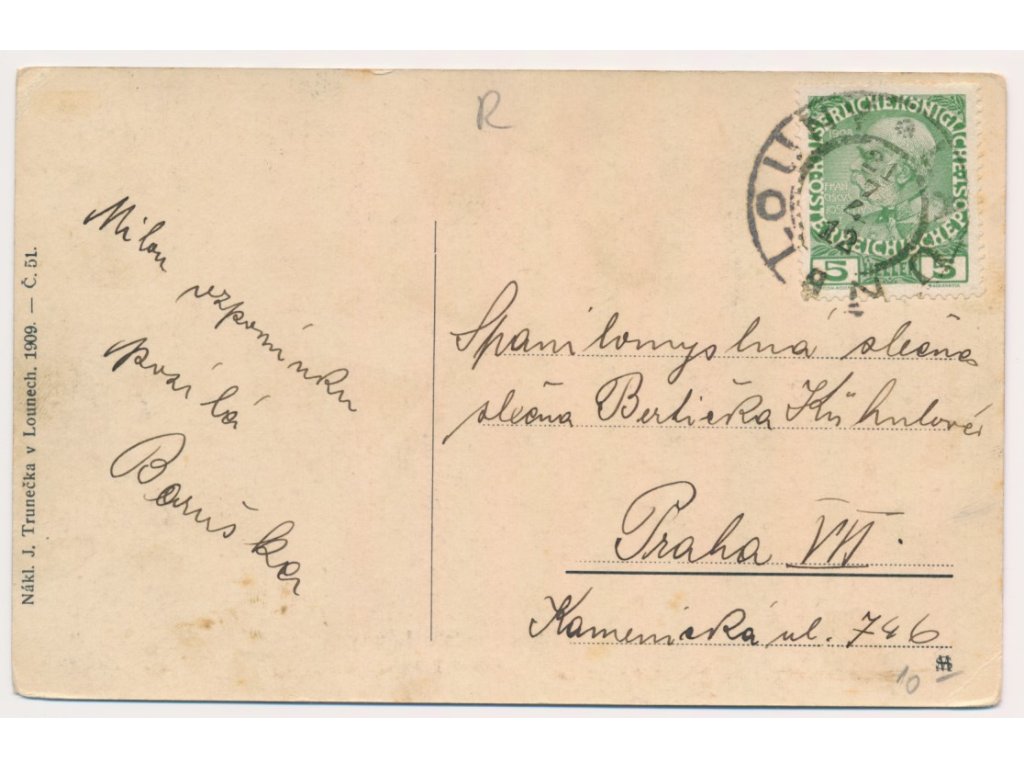 Nákl. J. Trunečka v Lounech. 1909. — Č. 51.
R
Milou
vzpomínku
posílá
Baruška
LOUNY
12
KAISERLICHE KÖNIGLICHE
ÖSTERREICHISCHE POST
5 HELLER 5
Spanilomyslná slečna
slečna Bertička Kühnlová
Praha VII.
Kamenická ul. 746
10